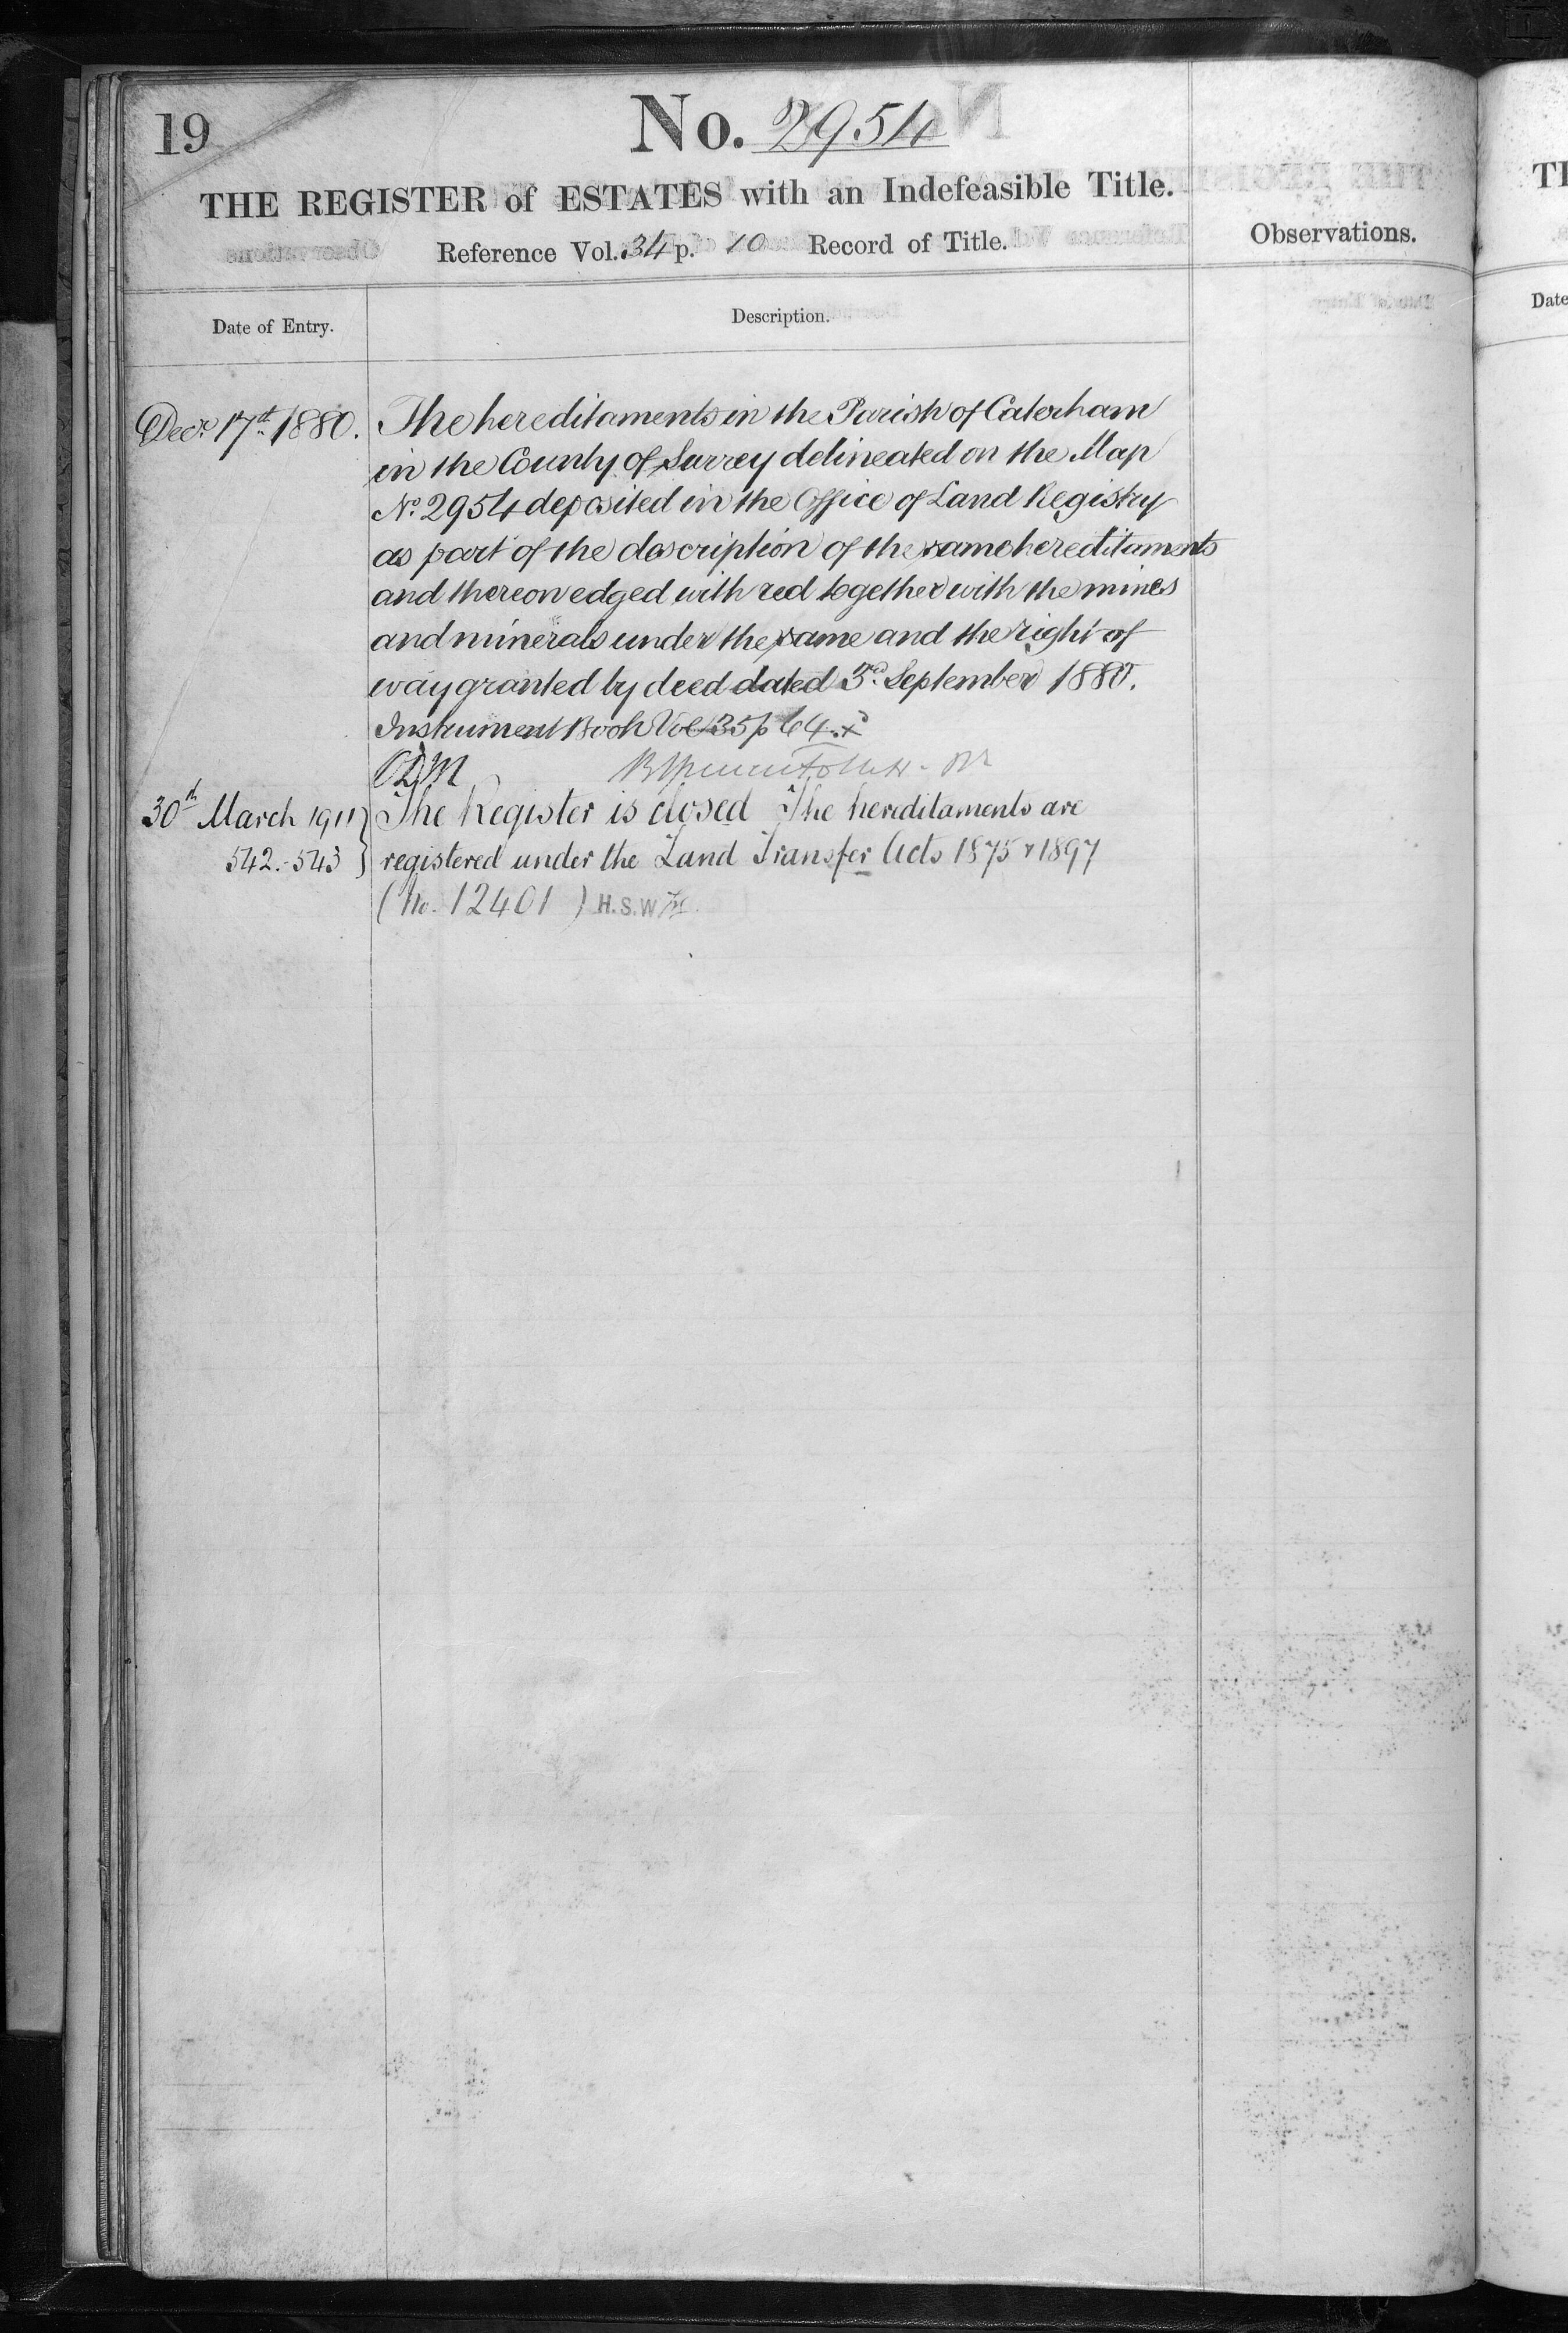 19
No. 2954
THE REGISTER of ESTATES with an Indefeasible Title.
Reference Vol. 34 p. 10 Record of Title.
Observations.
Date of Entry.
Description.
Decr. 17th 1880.
The hereditaments in the Parish of Caterham
in the County of Surrey delineated on the Map
No. 2954 deposited in the Office of Land Registry
as part of the description of the same hereditaments
and thereon edged with red together with the mines
and minerals under the same and the right of
way granted by deed dated 3rd September 1880.
Instrument Book Vol 35 p 64.
30th March 1911
542.-543
The Register is closed The hereditaments are
registered under the Land Transfer Acts 1875 & 1897
(No. 12401) H.S.W
TH
Date